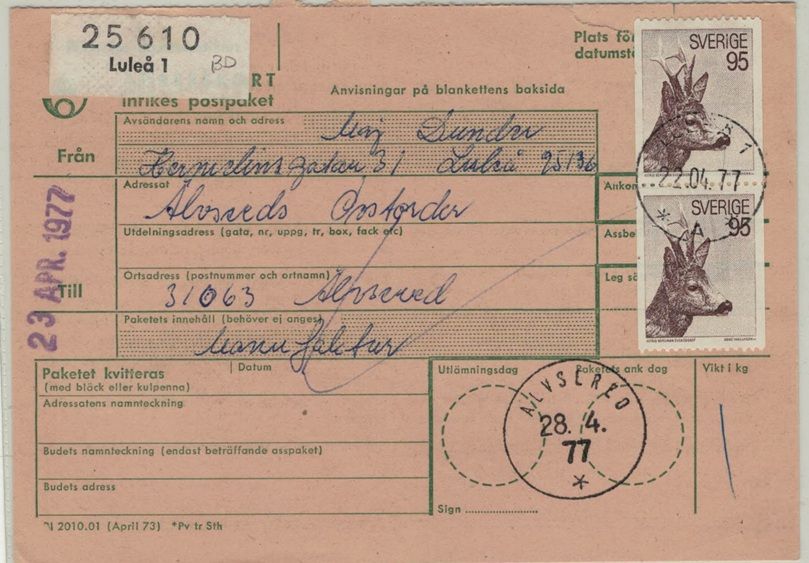 25 610
Luleå 1
BD
RT
Inrikes postpaket
Anvisningar på blankettens baksida
Plats för
datumstä
SVERIGE
95
LULEÅ 1
22.04.77
A
SVERIGE
95
Från
Avsändarens namn och adress
Maj Dunder
Hermelinsgatan 31 Luleå 95136
Adressat
Älvsereds Postorder
Ankom
Utdelningsadress (gata, nr, uppg, tr, box, fack etc)
Assbe
23 APR. 1977
Till
Ortsadress (postnummer och ortnamn)
31063 Älvsered
Leg s
Paketets innehåll (behöver ej anges)
Manufaktur
Paketet kvitteras
(med bläck eller kulpenna)
Datum
Utlämningsdag
Paketets ank dag
Vikt i kg
1
Adressatens namnteckning
ÄLVSERED
28. 4.
77
Budets namnteckning (endast beträffande asspaket)
Budets adress
Sign
Bl 2010.01 (April 73) *Pv tr Sth